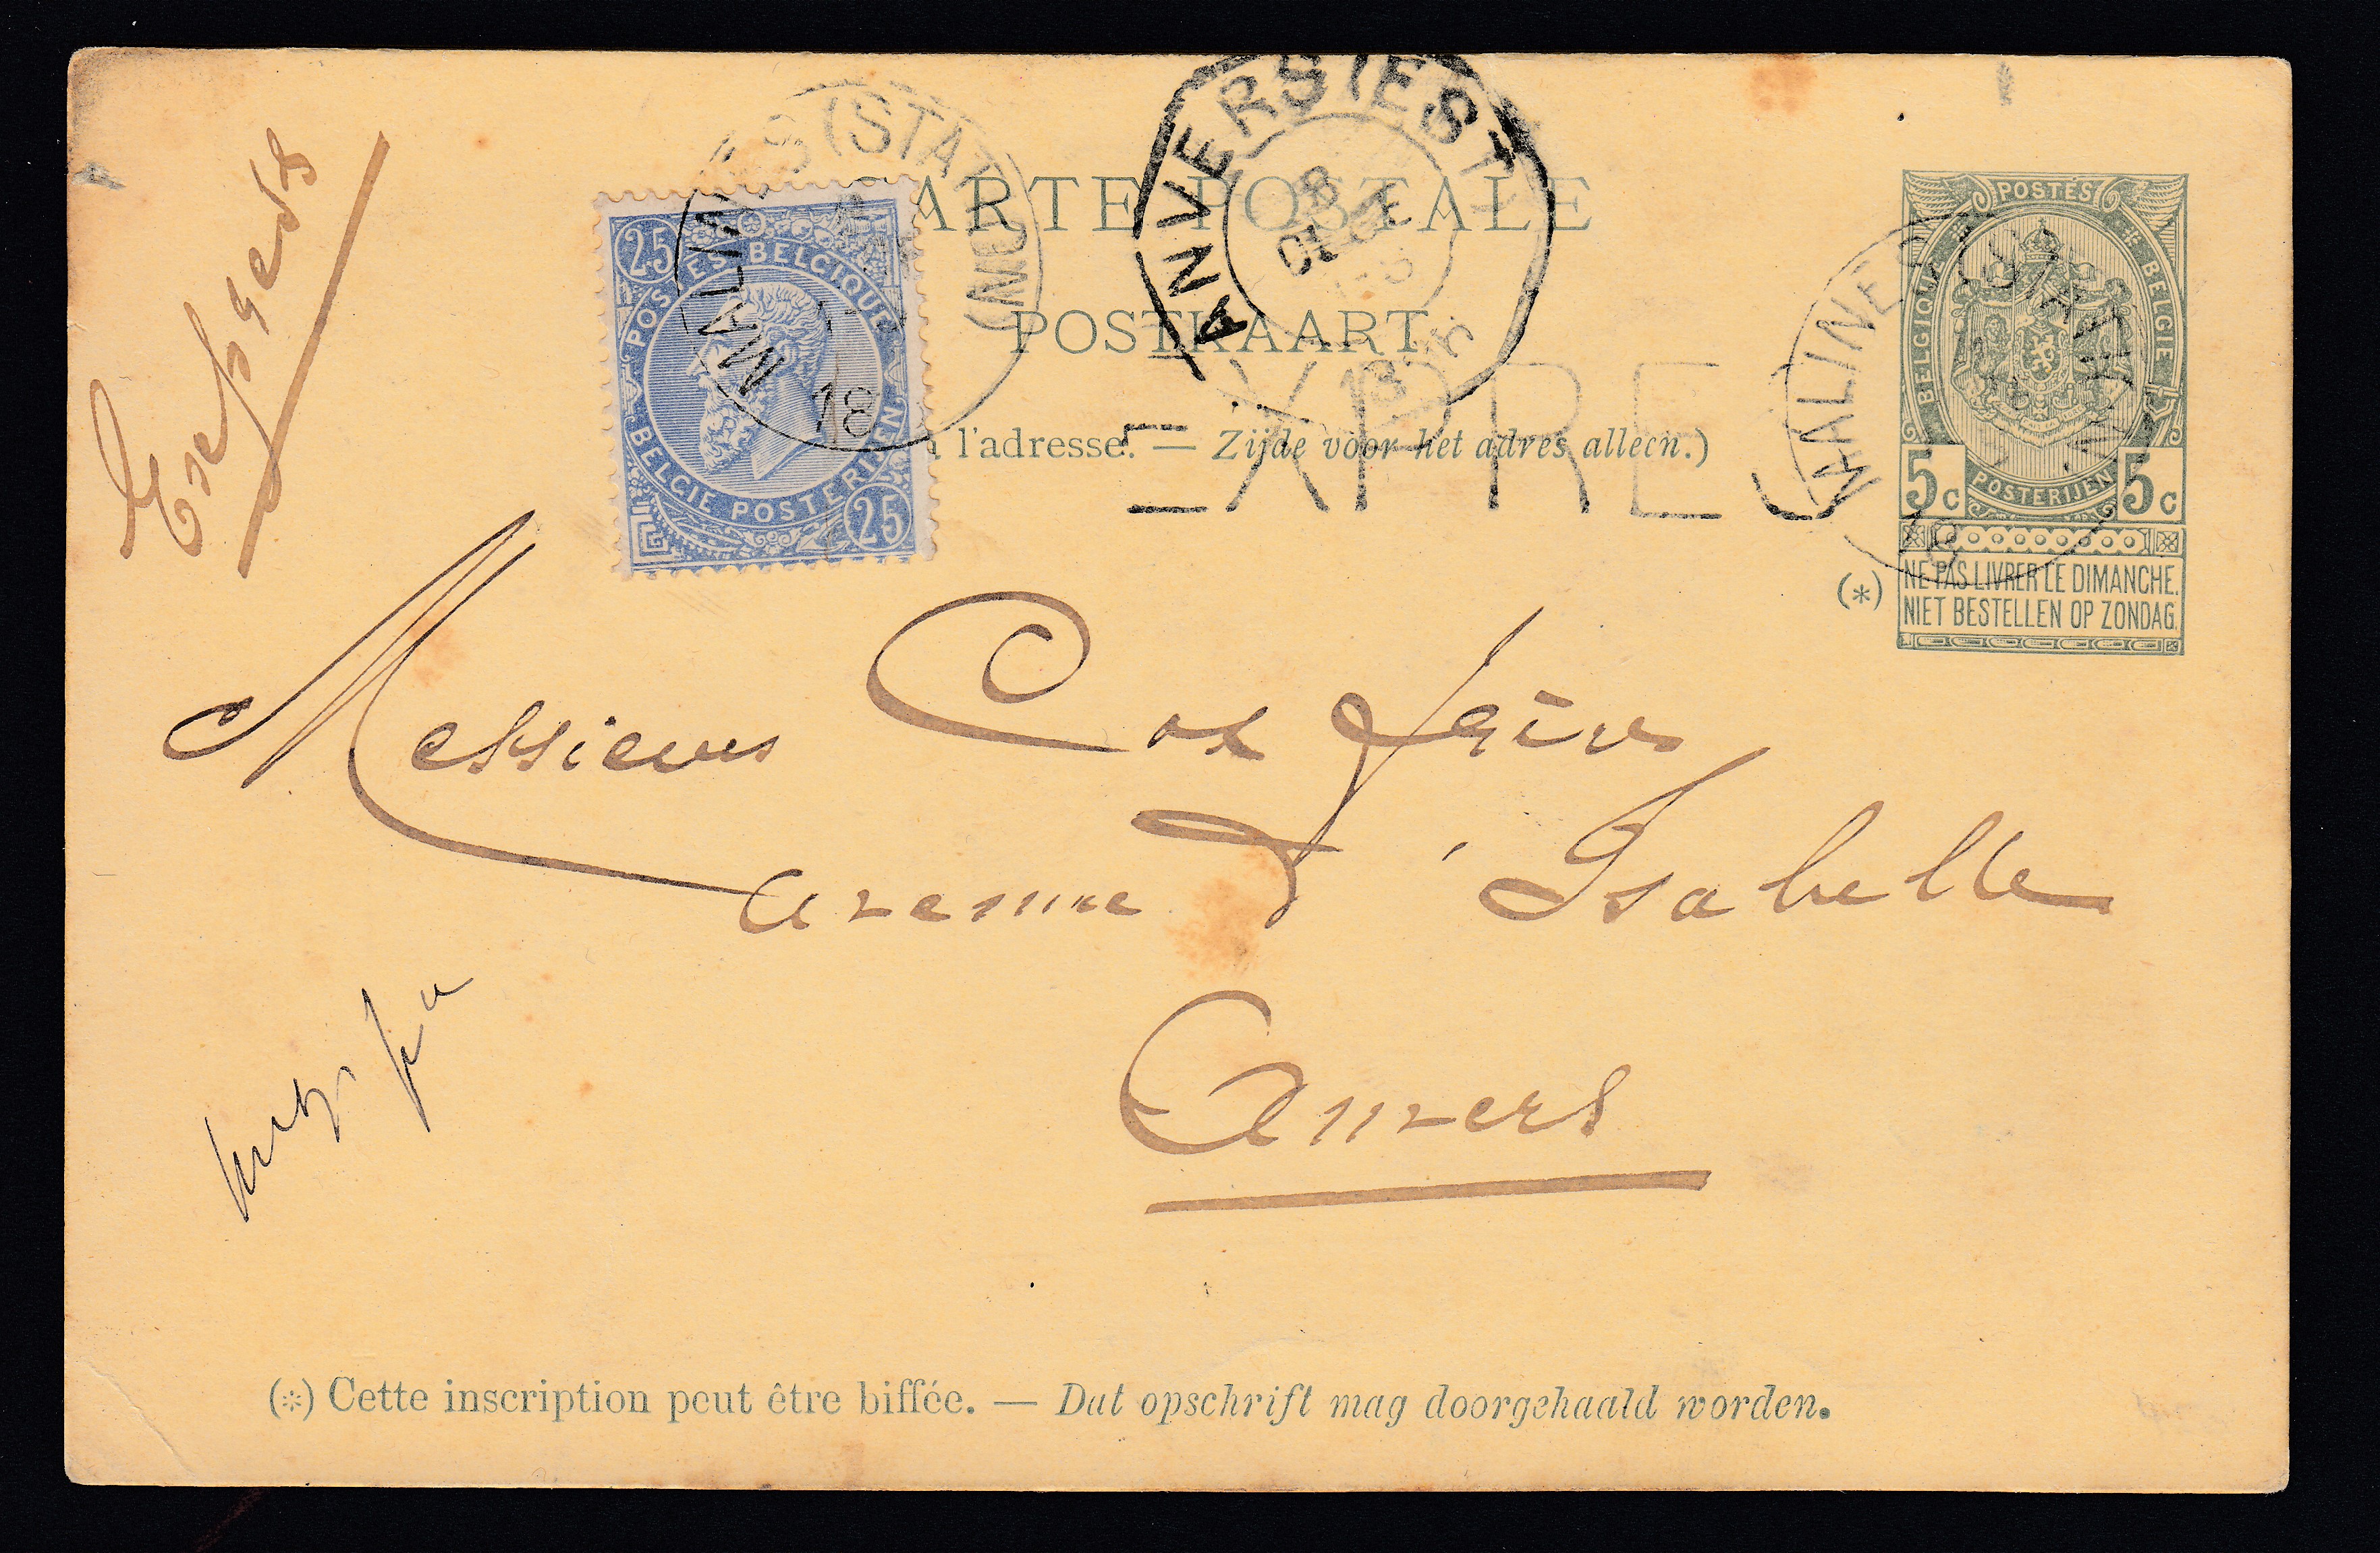 MALINES (STATION)
18
ANVERS (EST)
8
18
MALINES (STATION)
18
CARTE POSTALE
POSTKAART
à l'adresse. — Zijde voor het adres alleen.)
EXPRES
25
POSTES BELGIQUE
BELGIE POSTERIJEN
25
POSTES
BELGIQUE BELGIE
5c POSTERIJEN 5c
(*) NE PAS LIVRER LE DIMANCHE.
NIET BESTELLEN OP ZONDAG.
Messieurs Cox frères
avenue d'Isabelle
Anvers
(*) Cette inscription peut être biffée. — Dat opschrift mag doorgehaald worden.